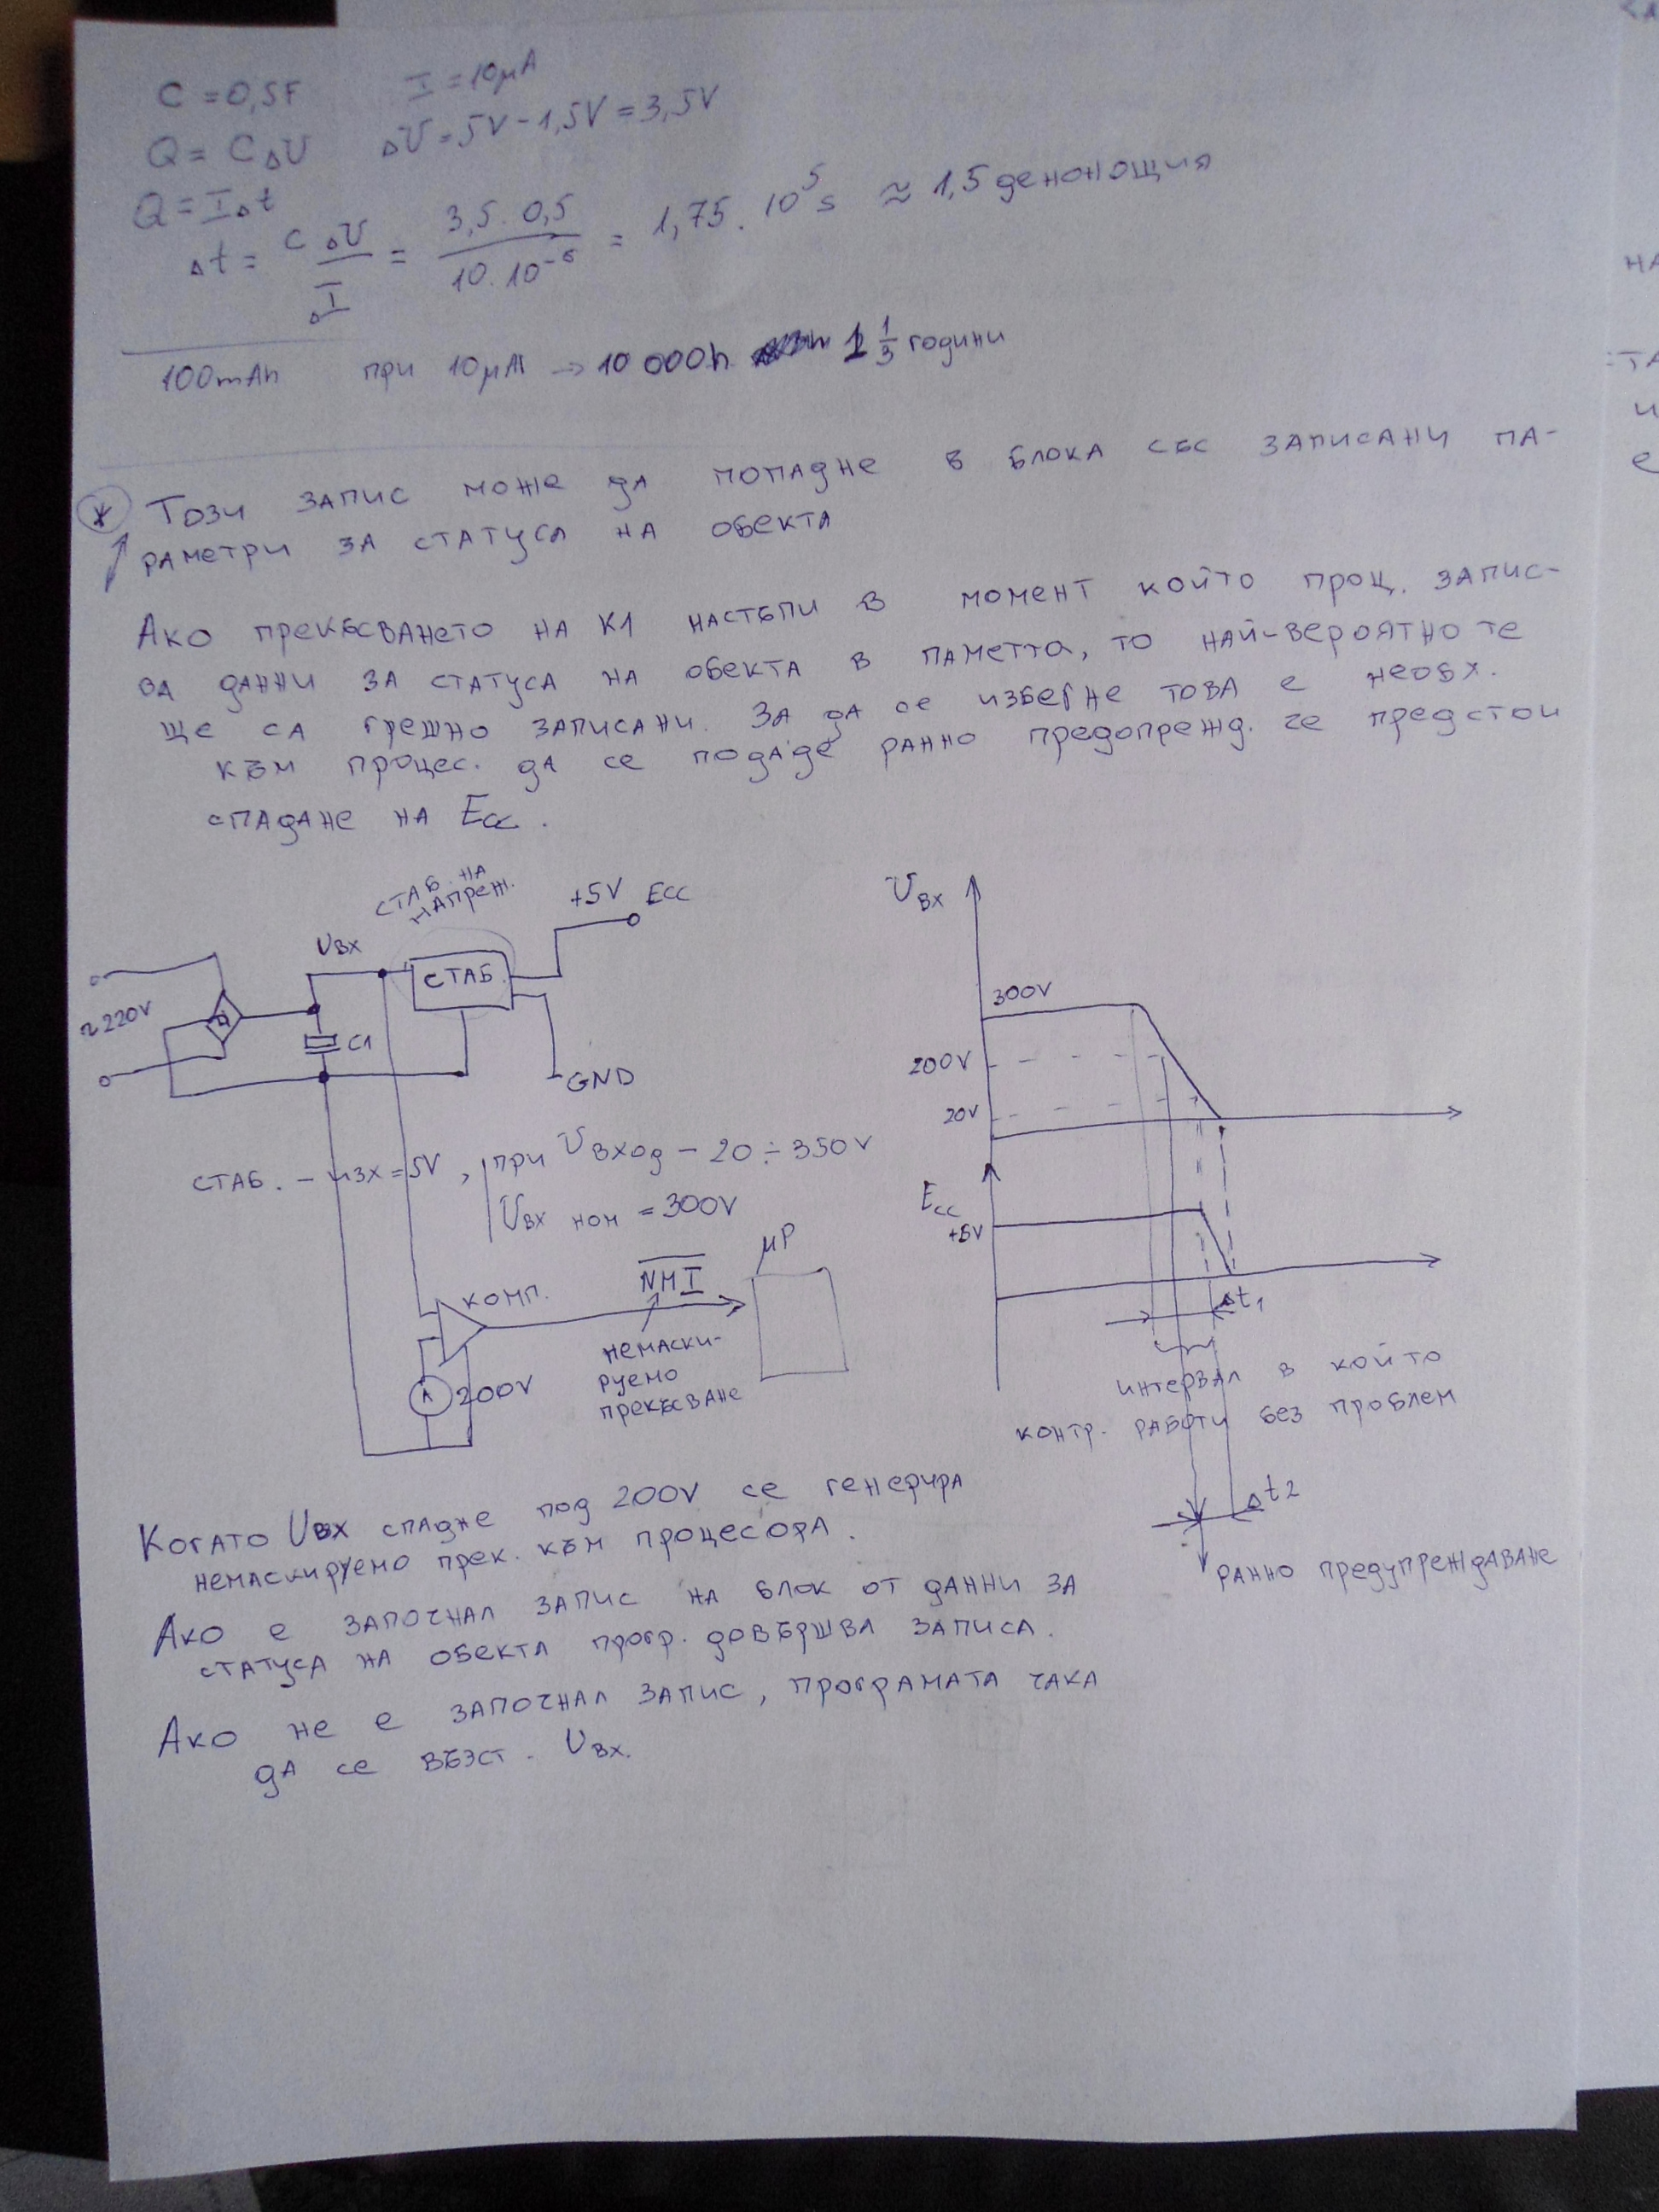 C = 0,5F I = 10μA
Q = CΔU ΔU = 5V - 1,5V = 3,5V
Q = IΔt
Δt = CΔU / ΔI = 3,5 . 0,5 / 10 . 10⁻⁶ = 1,75 . 10⁵ s ≈ 1,5 денонощия
100mAh при 10μA → 10 000h 1 1/3 години
* Този запис може да попадне в блока със записани па-
раметри за статуса на обекта
Ако прекъсването на К1 настъпи в момент който проц. запис-
ва данни за статуса на обекта в паметта, то най-вероятно те
ще са грешно записани. За да се избегне това е необх.
към процес. да се подаде ранно предопрежд. че предстои
спадане на Ecc.
СТАБ. НА
НАПРЕЖ.
+5V Ecc
Uвх
СТАБ.
~220V
C1
GND
Uвх
300V
200V
20V
СТАБ. - изх = 5V, при Uвход - 20 ÷ 350V
Uвх ном = 300V
Ecc
+5V
μP
NMI
КОМП.
немаски-
руемо
прекъсване
200V
Δt1
интервал в който
контр. работи без проблем
Δt2
ранно предупреждаване
Когато Uвх спадне под 200V се генерира
немаскируемо прек. към процесора.
Ако е започнал запис на блок от данни за
статуса на обекта прогр. довършва записа.
Ако не е започнал запис, програмата чака
да се възст. Uвх.